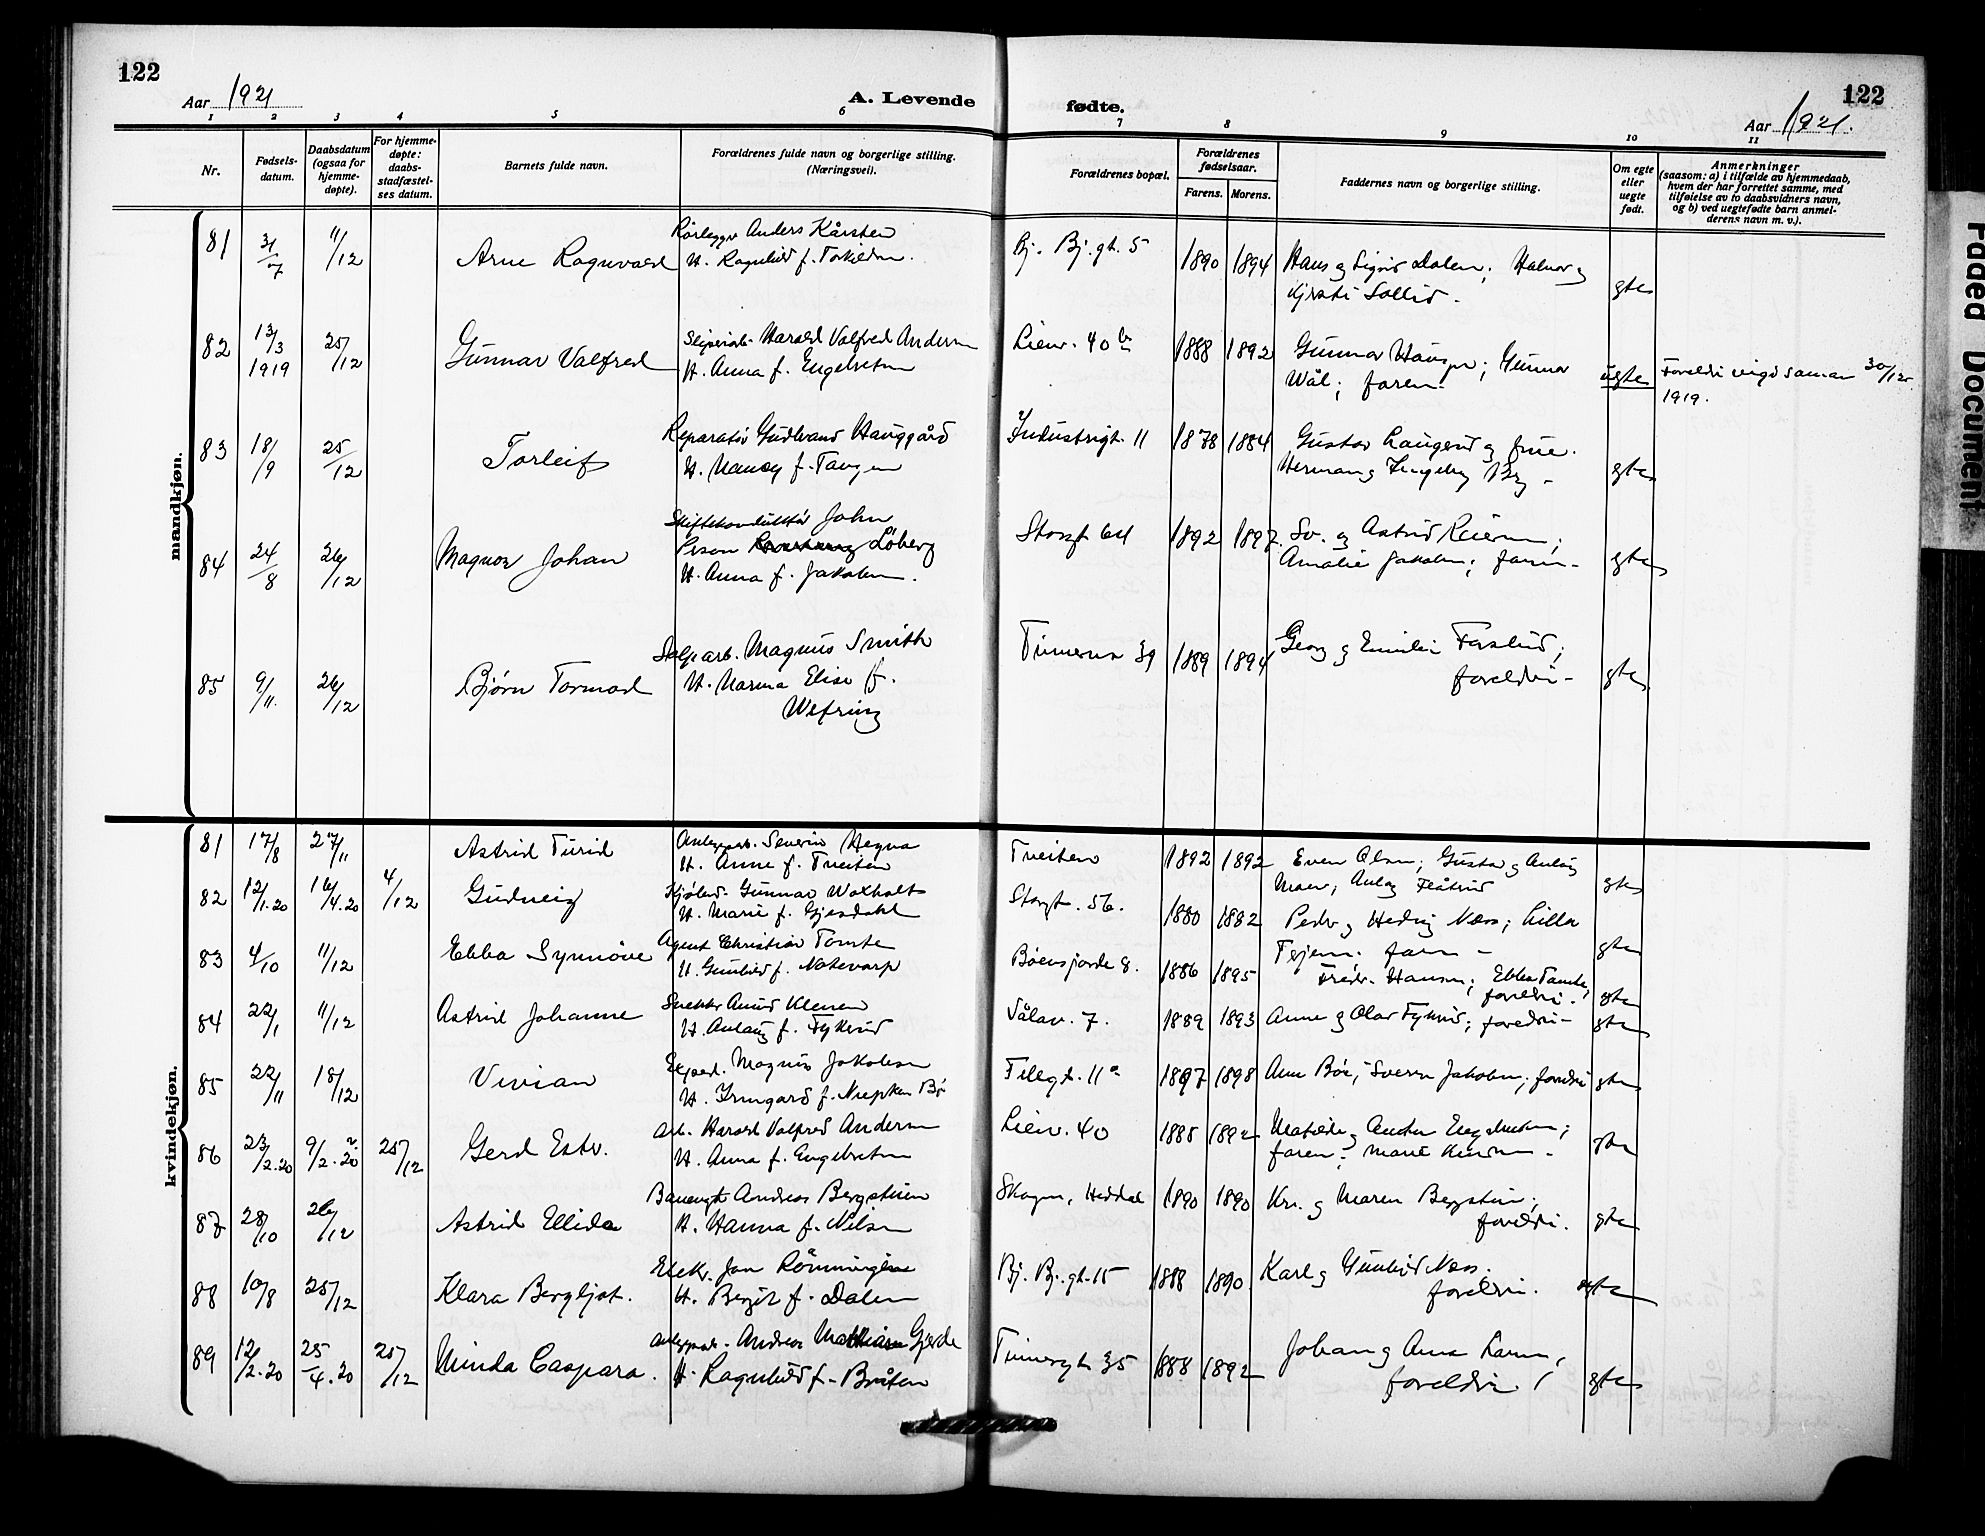 122
Aar 1921
A. Levende
fødte.
122
Aar 1921.
1 2 3 4 5 6 7 8 9 10 11
Nr.
Fødsels-
datum.
Daabsdatum
(ogsaa for
hjemme-
døpte).
For hjemme-
døpte:
daabs-
stadfæstel-
ses datum.
Barnets fulde navn.
Forældrenes fulde navn og borgerlige stilling.
(Næringsvei).
Forældrenes bopæl.
Forældrenes
fødselsaar.
Farens. Morens.
Faddernes navn og borgerlige stilling.
Om egte
eller
uegte
født.
Anmerkninger
(saasom: a) i tilfælde av hjemmedaab,
hvem der har forrettet samme, med
tilføielse av to daabsvidners navn,
og b) ved uegtefødte barn anmel-
derens navn m. v.).
mandkjøn.
81 3/7 11/12 Arne Ragnvald
Rørlegger Anders Kårsten
H. Ragnhild f.
Bj. Bj. gt. 5 1890 1894
Hans og Sigrid Dalen; Halvor og
Kjersti Sollid - gte
82 13/3 1919 25/12 Gunnar Valfred
Harald Valfred Andersen
H. Anna f. Engebretsen
Lienv. 40 b 1888 1892
Gunnar Hansen; Gunnar
Wål; faren - uegte
Foreldre vigd saman 30/12
1919.
83 18/9 25/12 Torleif
Reparatør Gudbrand Hauggård
H. Nancy f. Tangen
Industrigt. 11 1878 1884
Gustav Laugerud og frue.
Herman og Ingeborg Bry - gte
84 24/8 26/12 Magnor Johan
Skiftekonduktør John
Person Løberg
H. Anna f. Jakobsen.
Storgt 64 1892 1897
Sv. og Astrid Reiersen;
Amalie Jakobsen; faren - gte
85 9/11. 26/12 Bjørn Tormod
arb. Magnus Smith
H. Marna Elise f.
Wefring
39 1889 1894
Georg og Emilie;
foreldri - gte
kvindekjøn.
81 17/8 27/11 Astrid Turid
Severin Hegna
H. Anne f. Tveiten
Tveiten 1892 1892
Even Olsen; Gustav og Aslaug
Moen; Aslaug Flåtrud gte
82 12/1.20 16/4.20 4/12 Gudveig
Gunnar Woxholt
H. Marie f. Gjesdahl
Storgt. 56. 1880 1882
Peder og Hedvig Næss; Lilla
faren - gte
83 4/10 11/12 Ebba Synnøve
Agent Christian Tomte
H. Gunhild f. Notevarp
Böensgorde 8. 1886 1895
Fredr. Hansen; Ebba Tomte;
foreldri. gte
84 22/1 11/12 Astrid Johanne
Snekker Amund Klemen
H. Aslaug f. Fykerud
Vålav. 7. 1889 1893
Anne og Olav Fykerud; foreldri - gte
85 22/11 18/12 Vivian
Exped. Magnus Jakobsen
H. Irmgard f.
Tellegt. 11 a 1897 1898
Anne Bøe; Sverre Jakobsen; foreldri gte
86 23/2.20 9/2.20 25/12 Gerd Estr.
Arb. Harald Valfred Andersen
H. Anna f. Engebretsen
Lienv. 40 1885 1892
Matilde og Anders Engebretsen;
faren; Marie gte
87 28/10 26/12 Astrid Ellida
Banevogt Andreas Bergstuen
H. Hanna f. Nilsen
Skogen, Heddal 1890 1890
Kr. og Maren Bergstuen;
foreldri. gte
88 10/8 25/12 Klara Bergljot.
Elektr. Jon Rönningen
H. Bergit f. Dalen
Bj. Bj. gt. 15 1888 1890
Karl og Gunhild Næss.
foreldri. gte
89 12/2.20 25/4.20 25/12 Minda Caspara.
Andreas Mathiasen Gjerde
H. Ragnhild f. Bråten
35 1888 1892
Johan og Anna Larsen,
foreldri gte
Faded Document